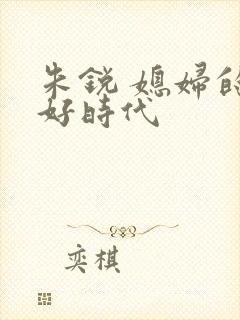 朱銳 媳婦的
好時代
奕棋